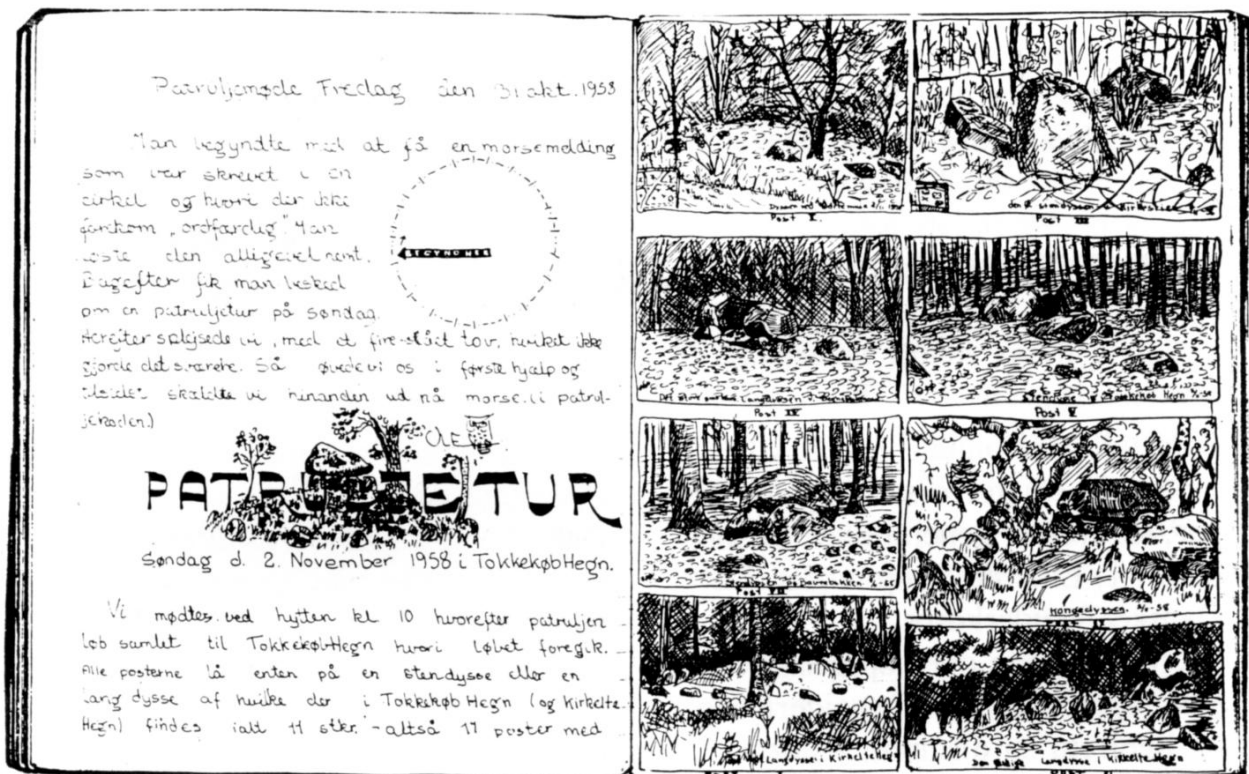 Patruljemøde Fredag den 31 okt. 1958
Man begyndte med at få en morsemelding
som var skrevet i en
cirkel og hvori der ikke
forekom „ordfærdig". Man
løste den alligevel nemt.
Bagefter fik man besked
om en patruljetur på søndag.
Herefter splejsede vi, med et fire-slået tov, hvilket ikke
gjorde det sværere. Så øvede vi os i første hjælp og
tilsidst skældte vi hinanden ud på morse. (i patrul-
jekoden.)
BEGYND HER
OLE
PATRULJETUR
Søndag d. 2. November 1958 i TokkekøbHegn.
Vi mødtes ved hytten kl 10 hvorefter patruljen
løb samlet til TokkekøbHegn hvori løbet foregik.
Alle posterne lå enten på en stendysse eller en
langdysse af hvilke der i Tokkekøb Hegn (og Kirkelte
Hegn) findes ialt 11 stkr. - altså 17 poster med
Post I
Post III
Post IV
i Tokkekøb Hegn
Post V
Post VII
Hangedyssen.
Langdysse i Kirkelte Hegn
Den langdysse i Kirkelte Hegn